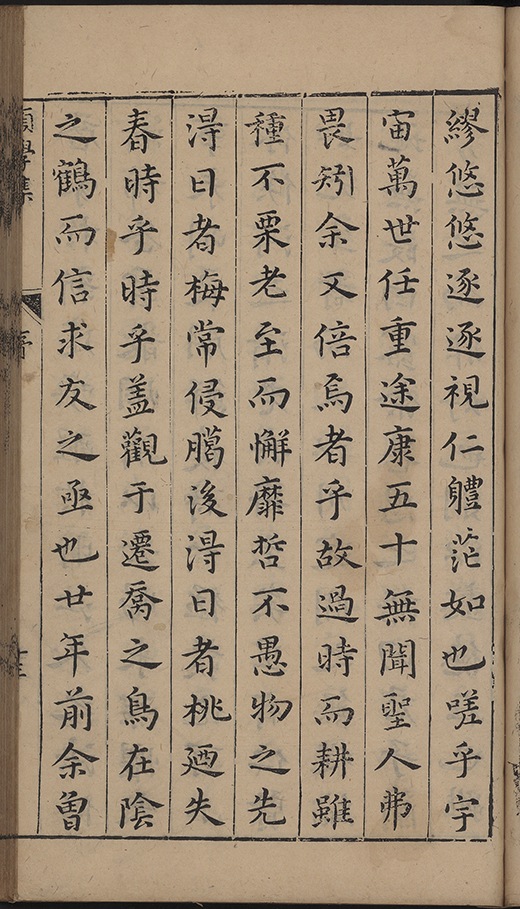 繆悠悠逐逐視仁軆茫如也嗟乎宇
宙萬世任重途康五十無聞聖人弗
畏矧余又倍焉者乎故過時而耕雖
種不栗老至而懈靡哲不愚物之先
淂日者梅常侵臈後淂日者桃廼失
春時乎時乎盖觀于遷喬之鳥在陰
之鶴而信求友之亟也廿年前余曽
學集
序